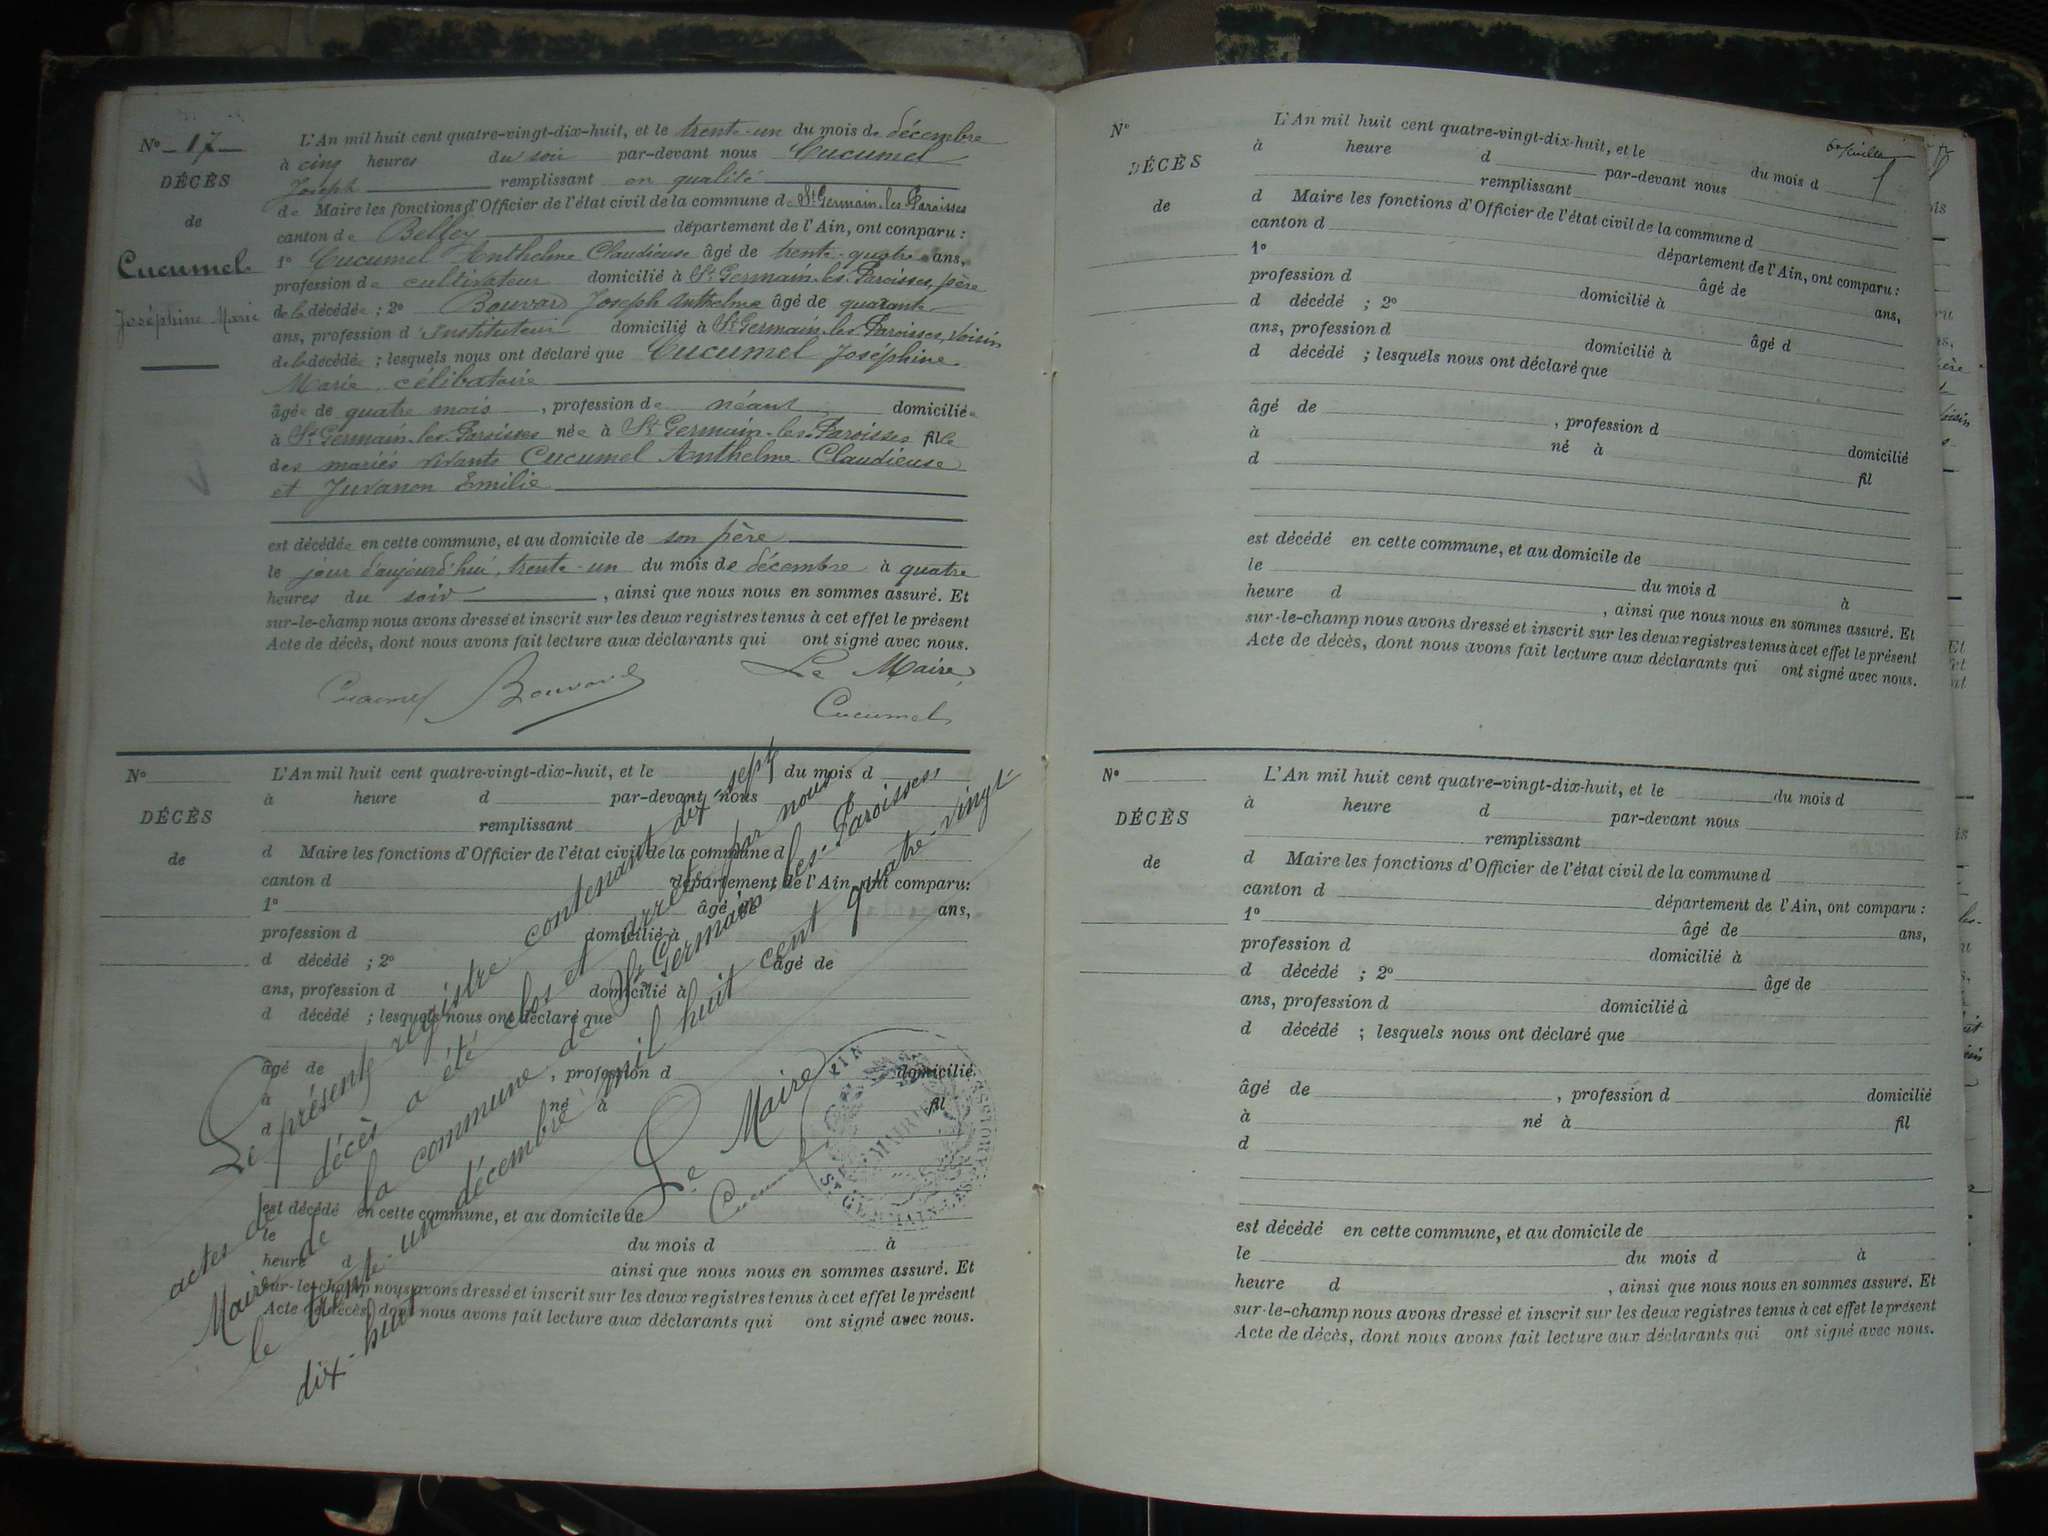 N° 17
DÉCÈS
de
Cucumel
Joséphine Marie
L'An mil huit cent quatre-vingt-dix-huit, et le trente-un du mois de décembre
à cinq heures du soir par-devant nous Cucumel
Joseph remplissant en qualité
de Maire les fonctions d'Officier de l'état civil de la commune de St Germain-les-Paroisses
canton de Belley département de l'Ain, ont comparu :
1° Cucumel Anthelme Claudieuse âgé de trente-quatre ans,
profession de cultivateur domicilié à St Germain-les-Paroisses, père
de la décédée ; 2° Bouvard Joseph Anthelme âgé de quarante
ans, profession d'Instituteur domicilié à St Germain-les-Paroisses, voisin
de la décédée ; lesquels nous ont déclaré que Cucumel Joséphine
Marie, célibataire
âgée de quatre mois, profession de néant domiciliée
à St Germain-les-Paroisses née à St Germain-les-Paroisses fille
des mariés vivants Cucumel Anthelme Claudieuse
et Juvanon Emilie
est décédée en cette commune, et au domicile de son père
le jour d'aujourd'hui, trente-un du mois de décembre à quatre
heures du soir, ainsi que nous nous en sommes assuré. Et
sur-le-champ nous avons dressé et inscrit sur les deux registres tenus à cet effet le présent
Acte de décès, dont nous avons fait lecture aux déclarants qui ont signé avec nous.
Cucumel Bouvard Le Maire,
Cucumel
N°
DÉCÈS
de
L'An mil huit cent quatre-vingt-dix-huit, et le du mois d
à heure d par-devant nous
remplissant
d Maire les fonctions d'Officier de l'état civil de la commune d
canton d département de l'Ain, ont comparu:
1° âgé de ans,
profession d domicilié à
d décédé ; 2° âgé de
ans, profession d domicilié à
d décédé ; lesquels nous ont déclaré que
âgé de , profession d domicilié
à né à fil
d
est décédé en cette commune, et au domicile de
le du mois d à
heure d ainsi que nous nous en sommes assuré. Et
sur-le-champ nous avons dressé et inscrit sur les deux registres tenus à cet effet le présent
Acte de décès, dont nous avons fait lecture aux déclarants qui ont signé avec nous.
Le présent registre contenant dix-sept
actes de décès a été clos et arrêté par nous
Maire de la commune de St Germain-les-Paroisses,
le trente-un décembre mil huit cent quatre-vingt-
dix-huit
Le Maire
Cucumel
MAIRIE
ST GERMAIN-LES-PAROISSES
AIN
N°
DÉCÈS
de
L'An mil huit cent quatre-vingt-dix-huit, et le du mois d
à heure d par-devant nous
remplissant
d Maire les fonctions d'Officier de l'état civil de la commune d
canton d département de l'Ain, ont comparu :
1° âgé de ans,
profession d domicilié à
d décédé ; 2° âgé d
ans, profession d domicilié à
d décédé ; lesquels nous ont déclaré que
âgé de , profession d domicilié
à né à fil
d
est décédé en cette commune, et au domicile de
le du mois d à
heure d , ainsi que nous nous en sommes assuré. Et
sur-le-champ nous avons dressé et inscrit sur les deux registres tenus à cet effet le présent
Acte de décès, dont nous avons fait lecture aux déclarants qui ont signé avec nous.
N°
DÉCÈS
de
L'An mil huit cent quatre-vingt-dix-huit, et le du mois d
à heure d par-devant nous
remplissant
d Maire les fonctions d'Officier de l'état civil de la commune d
canton d département de l'Ain, ont comparu :
1° âgé de ans,
profession d domicilié à
d décédé ; 2° âgé de
ans, profession d domicilié à
d décédé ; lesquels nous ont déclaré que
âgé de , profession d domicilié
à né à fil
d
est décédé en cette commune, et au domicile de
le du mois d à
heure d , ainsi que nous nous en sommes assuré. Et
sur-le-champ nous avons dressé et inscrit sur les deux registres tenus à cet effet le présent
Acte de décès, dont nous avons fait lecture aux déclarants qui ont signé avec nous.